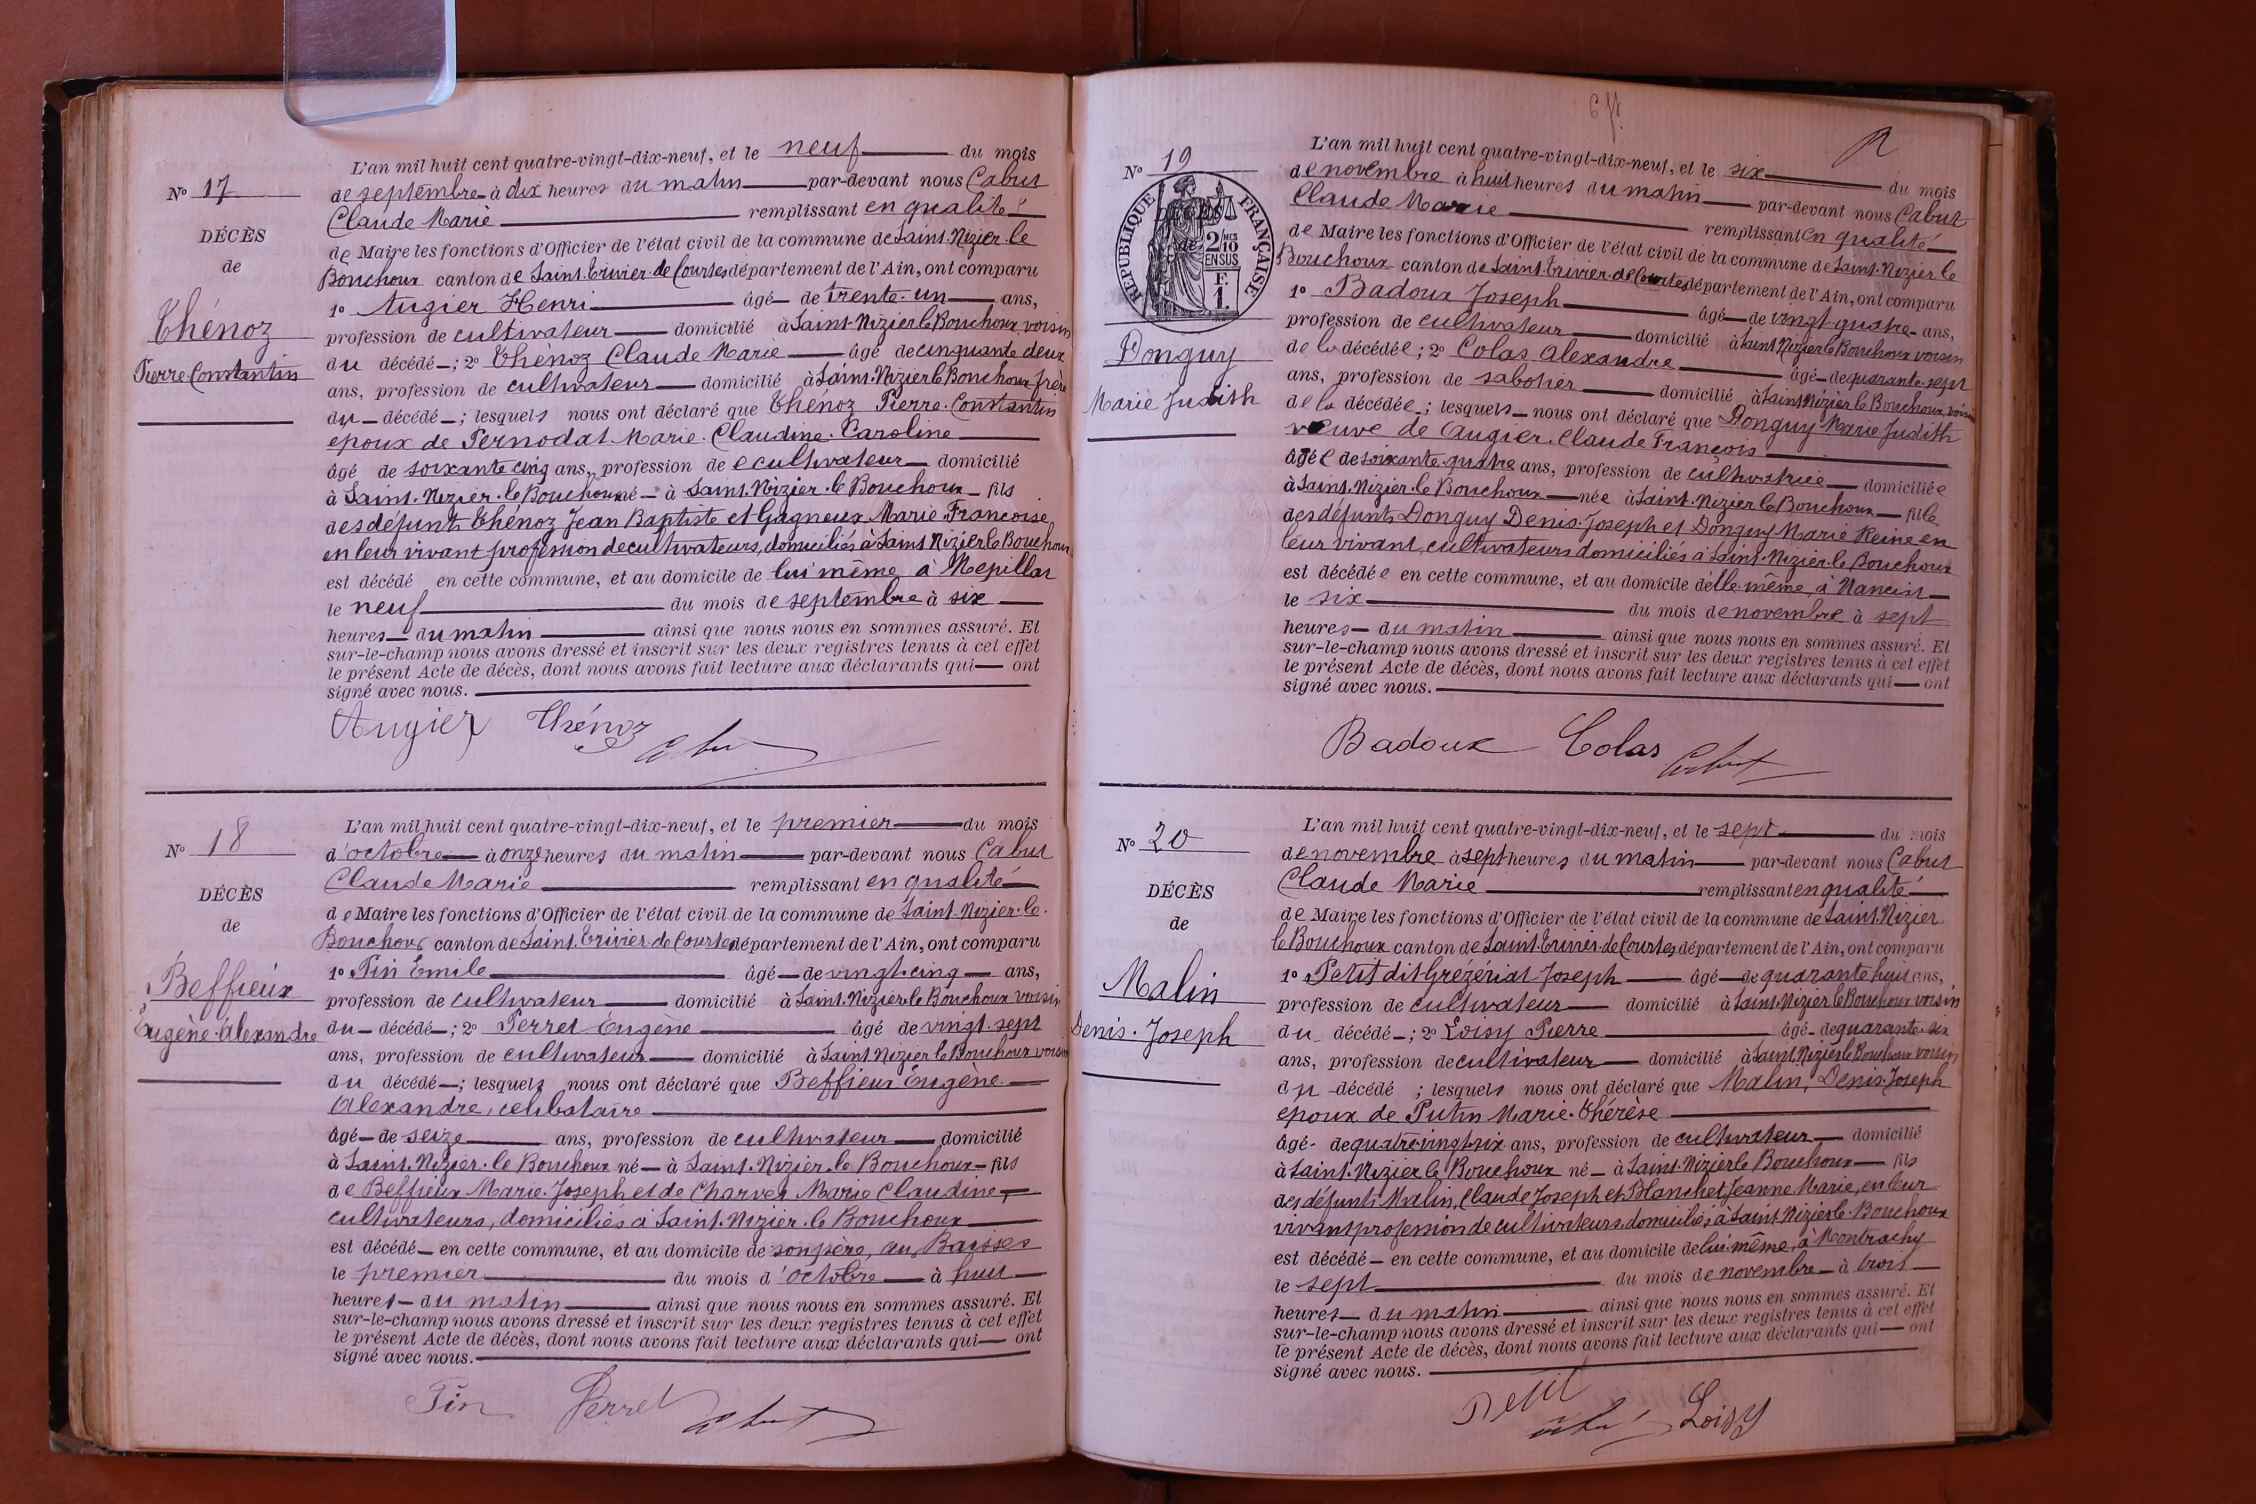 L'an mil huit cent quatre-vingt-dix-neuf, et le neuf du mois
No 17
de septembre à dix heures du matin par-devant nous Cabut
Claude Marie remplissant en qualité
DÉCÈS
de Maire les fonctions d'Officier de l'état civil de la commune de Saint-Nizier-le
de
Bouchoux canton de Saint-Trivier de Courtes département de l'Ain, ont comparu
1o Augier Henri âgé de trente-un ans,
Thénoz
profession de cultivateur domicilié à Saint-Nizier le Bouchoux voisin
du décédé ; 2o Thénoz Claude Marie âgé de cinquante deux
Pierre Constantin
ans, profession de cultivateur domicilié à Saint-Nizier le Bouchoux frère
du décédé ; lesquels nous ont déclaré que Thénoz Pierre-Constantin
epoux de Pernodat Marie-Claudine-Caroline
âgé de soixante cinq ans, profession de cultivateur domicilié
à Saint-Nizier-le Bouchoux né à Saint-Nizier-le Bouchoux fils
des défunts Thénoz Jean Baptiste et Gagneux Marie-Françoise
en leur vivant profession de cultivateurs, domiciliés à Saint Nizier le Bouchoux
est décédé en cette commune, et au domicile de lui même à Mepillat
le neuf du mois de septembre à six
heures du matin ainsi que nous nous en sommes assuré. Et
sur-le-champ nous avons dressé et inscrit sur les deux registres tenus à cet effet
le présent Acte de décès, dont nous avons fait lecture aux déclarants qui ont
signé avec nous.
Augier Thénoz Cabut
L'an mil huit cent quatre-vingt-dix-neuf, et le premier du mois
No 18
d'octobre à onze heures du matin par-devant nous Cabut
Claude Marie remplissant en qualité
DÉCÈS
de Maire les fonctions d'Officier de l'état civil de la commune de Saint-Nizier-le
de
Bouchoux canton de Saint-Trivier de Courtes département de l'Ain, ont comparu
1o Pin Emile âgé de vingt-cinq ans,
Beffieux
profession de cultivateur domicilié à Saint-Nizier le Bouchoux voisin
Eugène-Alexandre
du décédé ; 2o Perret Eugène âgé de vingt-sept
ans, profession de cultivateur domicilié à Saint Nizier le Bouchoux voisin
du décédé ; lesquels nous ont déclaré que Beffieux Eugène
Alexandre, celibataire
âgé de seize ans, profession de cultivateur domicilié
à Saint-Nizier-le Bouchoux né à Saint-Nizier-le Bouchoux fils
de Beffieux Marie-Joseph et de Charvet Marie Claudine
cultivateurs, domiciliés à Saint-Nizier-le Bouchoux
est décédé en cette commune, et au domicile de son père, au Baisses
le premier du mois d'octobre à huit
heures du matin ainsi que nous nous en sommes assuré. Et
sur-le-champ nous avons dressé et inscrit sur les deux registres tenus à cet effet
le présent Acte de décès, dont nous avons fait lecture aux déclarants qui ont
signé avec nous.
Pin Perret Cabut
L'an mil huit cent quatre-vingt-dix-neuf, et le six du mois
No 19
de novembre à huit heures du matin par-devant nous Cabut
Claude Marie remplissant en qualité
RÉPUBLIQUE FRANÇAISE
DÉCÈS
de
2/10 EN SUS
F. 1
de Maire les fonctions d'Officier de l'état civil de la commune de Saint-Nizier le
Bouchoux canton de Saint-Trivier-de Courtes département de l'Ain, ont comparu
1o Badoux Joseph âgé de vingt-quatre ans,
profession de cultivateur domicilié à Saint Nizier le Bouchoux voisin
Donguy
de la décédée ; 2o Colas Alexandre âgé de quarante-sept
ans, profession de sabotier domicilié à Saint Nizier le Bouchoux, voisin
Marie Judith
de la décédée ; lesquels nous ont déclaré que Donguy Marie Judith
veuve de Augier Claude François
âgée de soixante-quatre ans, profession de cultivatrice domiciliée
à Saint-Nizier-le Bouchoux née à Saint-Nizier le Bouchoux fille
des défunts Donguy Denis-Joseph et Donguy Marie Reine en
leur vivant, cultivateurs domiciliés à Saint-Nizier-le Bouchoux
est décédée en cette commune, et au domicile d'elle-même, à Nancin
le six du mois de novembre à sept
heures du matin ainsi que nous nous en sommes assuré. Et
sur-le-champ nous avons dressé et inscrit sur les deux registres tenus à cet effet
le présent Acte de décès, dont nous avons fait lecture aux déclarants qui ont
signé avec nous.
Badoux Colas Cabut
L'an mil huit cent quatre-vingt-dix-neuf, et le sept du mois
No 20
de novembre à sept heures du matin par-devant nous Cabut
Claude Marie remplissant en qualité
DÉCÈS
de Maire les fonctions d'Officier de l'état civil de la commune de Saint-Nizier
de
le Bouchoux canton de Saint-Trivier-de Courtes département de l'Ain, ont comparu
1o Petit dit Grézériat Joseph âgé de quarante huit ans,
Malin
profession de cultivateur domicilié à Saint-Nizier le Bouchoux voisin
Denis-Joseph
du décédé ; 2o Loisy Pierre âgé de quarante-six
ans, profession de cultivateur domicilié à Saint-Nizier le Bouchoux voisin
du décédé ; lesquels nous ont déclaré que Malin, Denis-Joseph
epoux de Putin Marie-Thérèse
âgé de quatre-vingt-six ans, profession de cultivateur domicilié
à Saint-Nizier le Bouchoux né à Saint-Nizier le Bouchoux fils
des défunts Malin, Claude Joseph et Blanchet Jeanne Marie, en leur
vivant profession de cultivateurs domiciliés à Saint Nizier le-Bouchoux
est décédé en cette commune, et au domicile de lui-même, à Montrachy
le sept du mois de novembre à trois
heures du matin ainsi que nous nous en sommes assuré. Et
sur-le-champ nous avons dressé et inscrit sur les deux registres tenus à cet effet
le présent Acte de décès, dont nous avons fait lecture aux déclarants qui ont
signé avec nous.
Petit Cabut Loisy